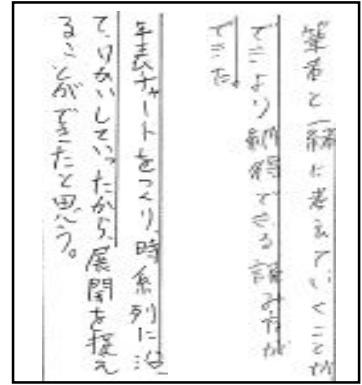 筆者と一緒に考えていくことが
でき、より納得できる読みが
できた。
年表チャートをつくり、時系列に沿っ
て、りかいしていったから、展開を捉え
ることができたと思う。